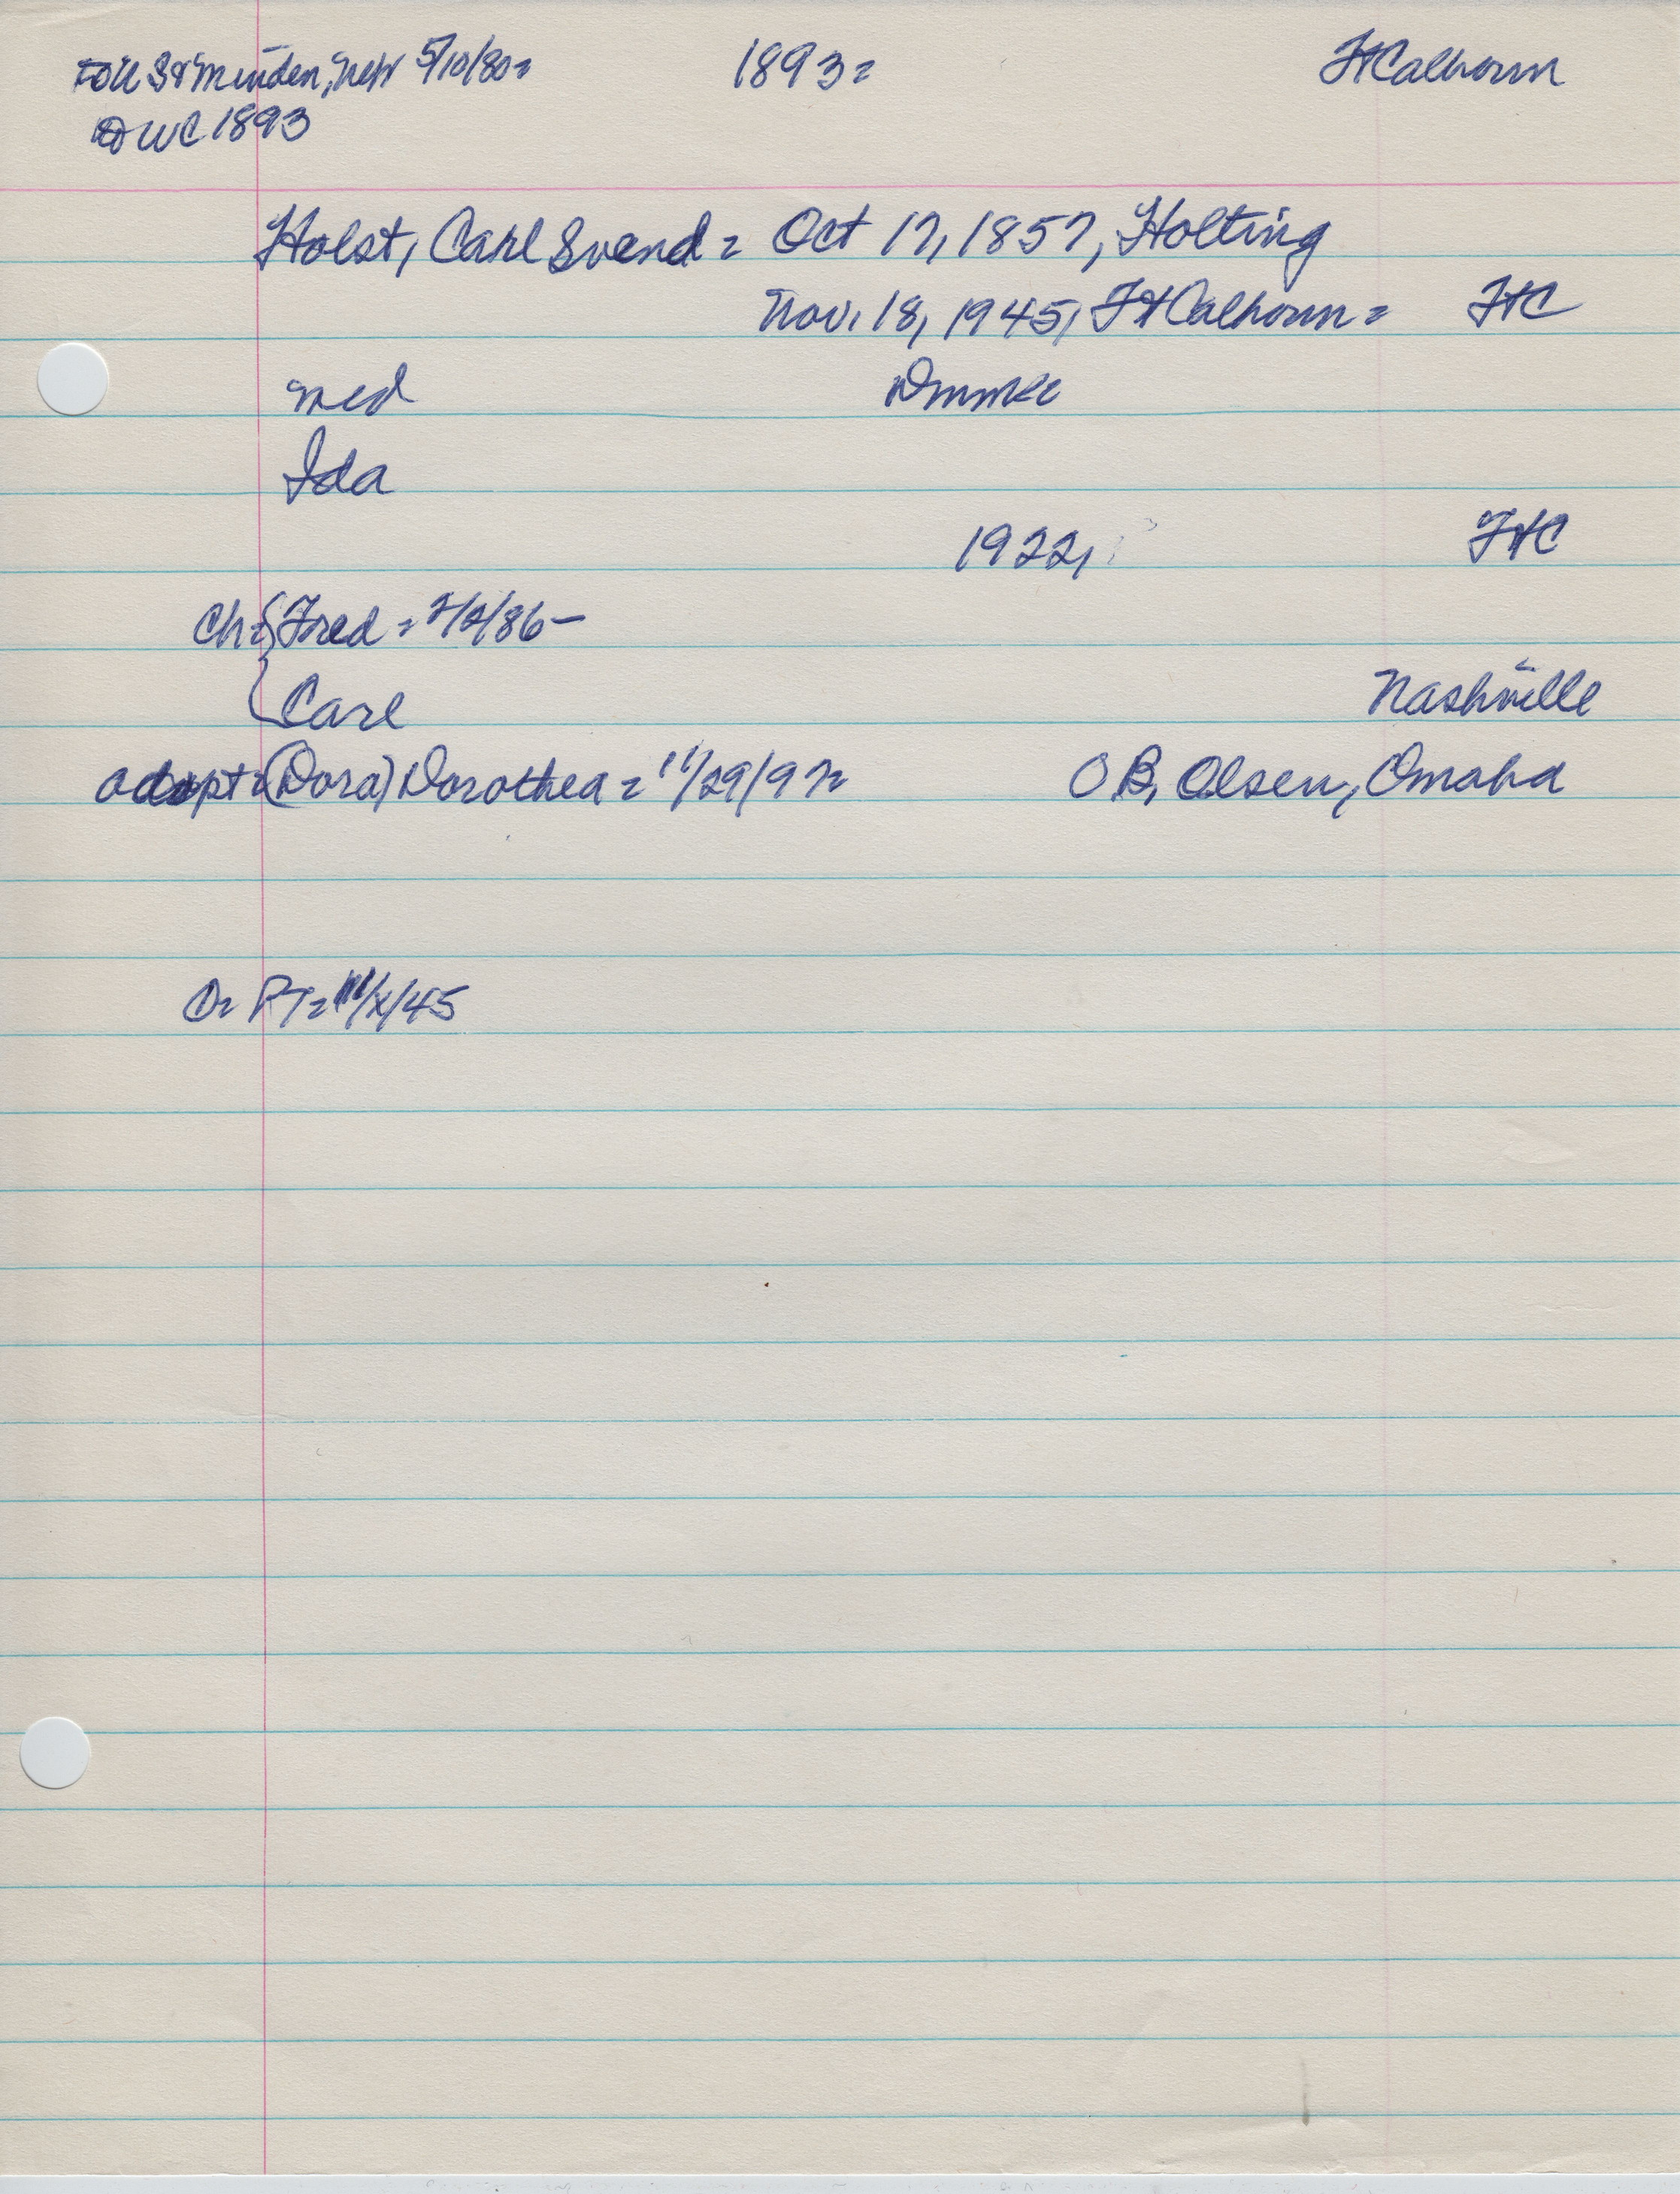 St Minden, Neb 5/10/80= 1893= FtCalhoun
WC 1893
Holst, Carl Svend = Oct 17, 1857, Holting
Nov. 18, 1945, Ft Calhoun = FtC
med Dmmke
Ida
1922, FtC
Ch = { Fred = 2/2/86 –
{ Carl Nashville
adopt = (Dora) Dorothea = 11/29/97= O B, Olsen, Omaha
D= PT= 11/x/45